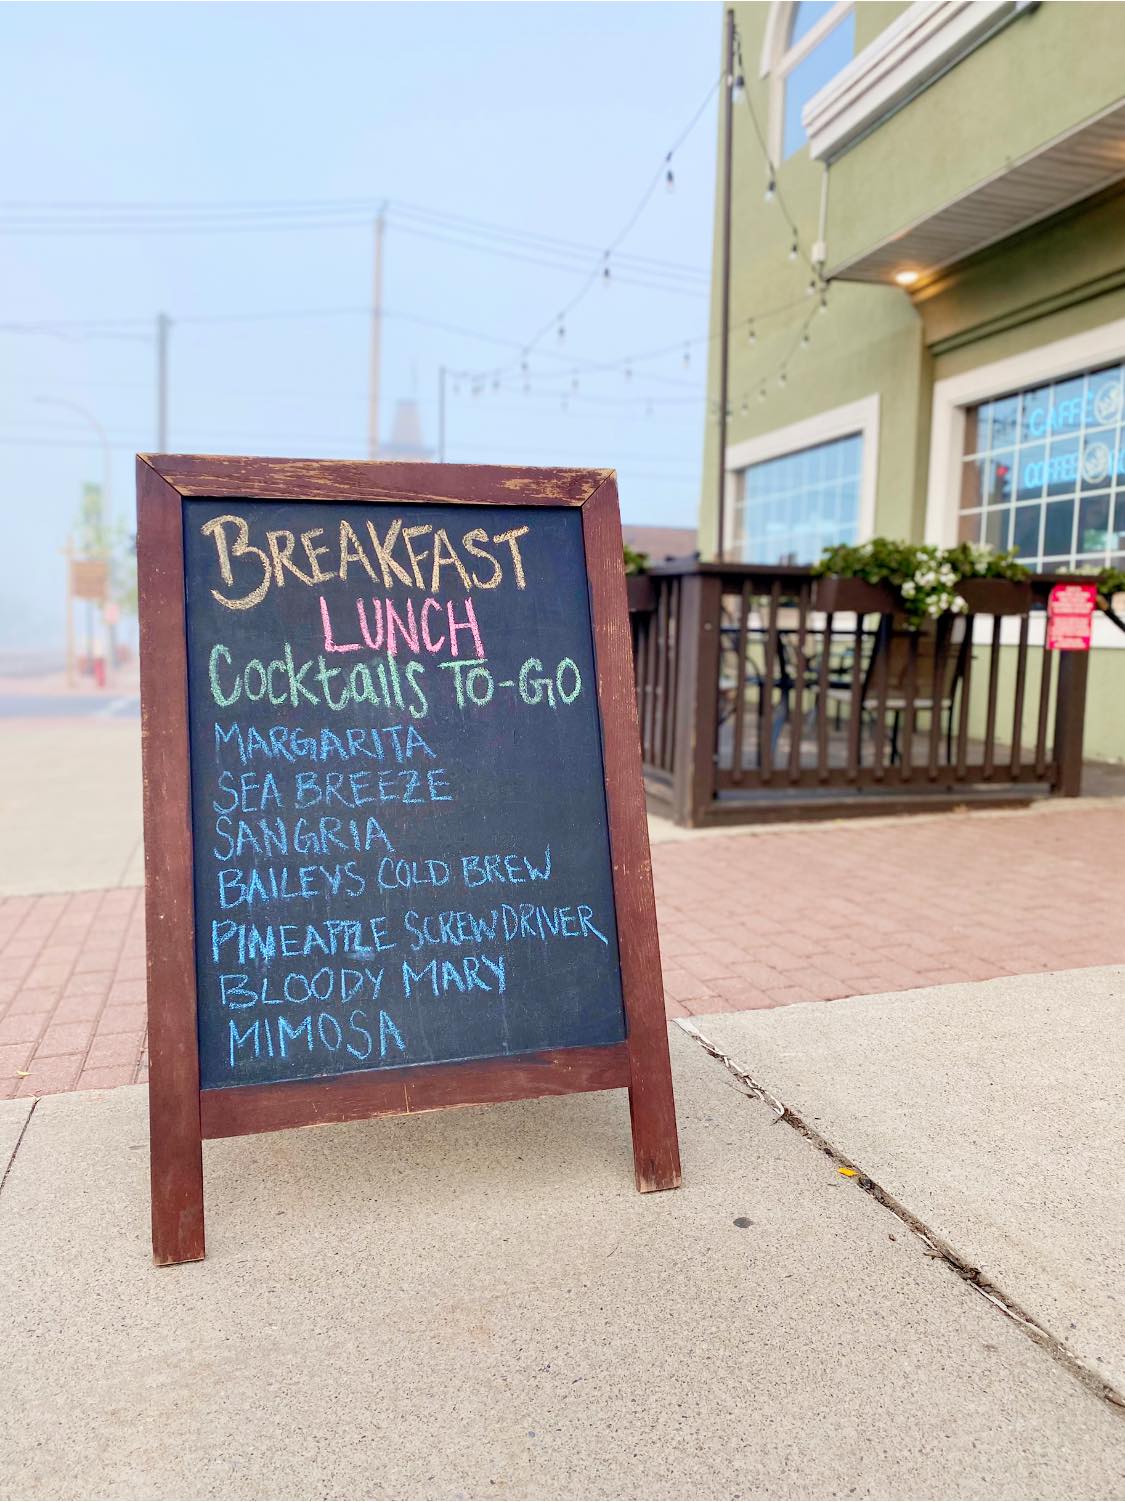 BREAKFAST
LUNCH
Cocktails To-GO
MARGARITA
SEA BREEZE
SANGRIA
BAILEYS COLD BREW
PINEAPPLE SCREWDRIVER
BLOODY MARY
MIMOSA
CAFFÈ
COFFEE